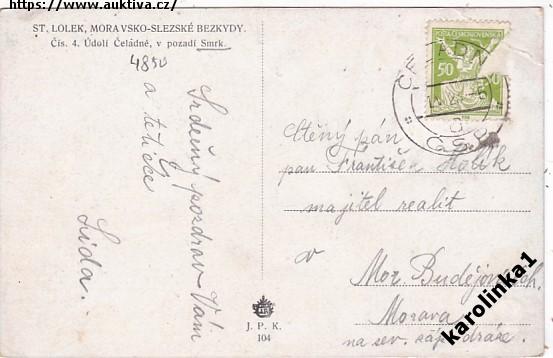 https://www.auktiva.cz/
ST. LOLEK, MORAVSKO-SLEZSKÉ BEZKYDY.
Čís. 4. Údolí Čeládné, v pozadí Smrk.
4850
Srdečný pozdrav Vám
a tetičce
Lída.
POŠTA ČESKOSLOVENSKÁ
50
Ctěný pán
pan František Holík
majitel realit
v
Mor. Budějovicích.
Morava
na sev. záp. dráze.
J. P. K.
104
karolinka1